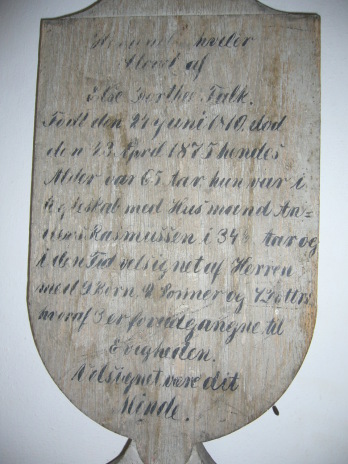 Herunder hviler
Støvet af
Else Dorthea Falk.
Født den 24 Juni 1810, død
den 23 April 1875 hendes
Alder var 65 Aar, hun var i
Egteskab med Husmand An-
Rasmussen i 34½ Aar og
i den Tid velsignet af Herren
med 9 Børn, 2 Sønner og 7 Døttre
hvoraf 3 er foranadgangne til
Evigheden.
Velsignet være dit
Minde.